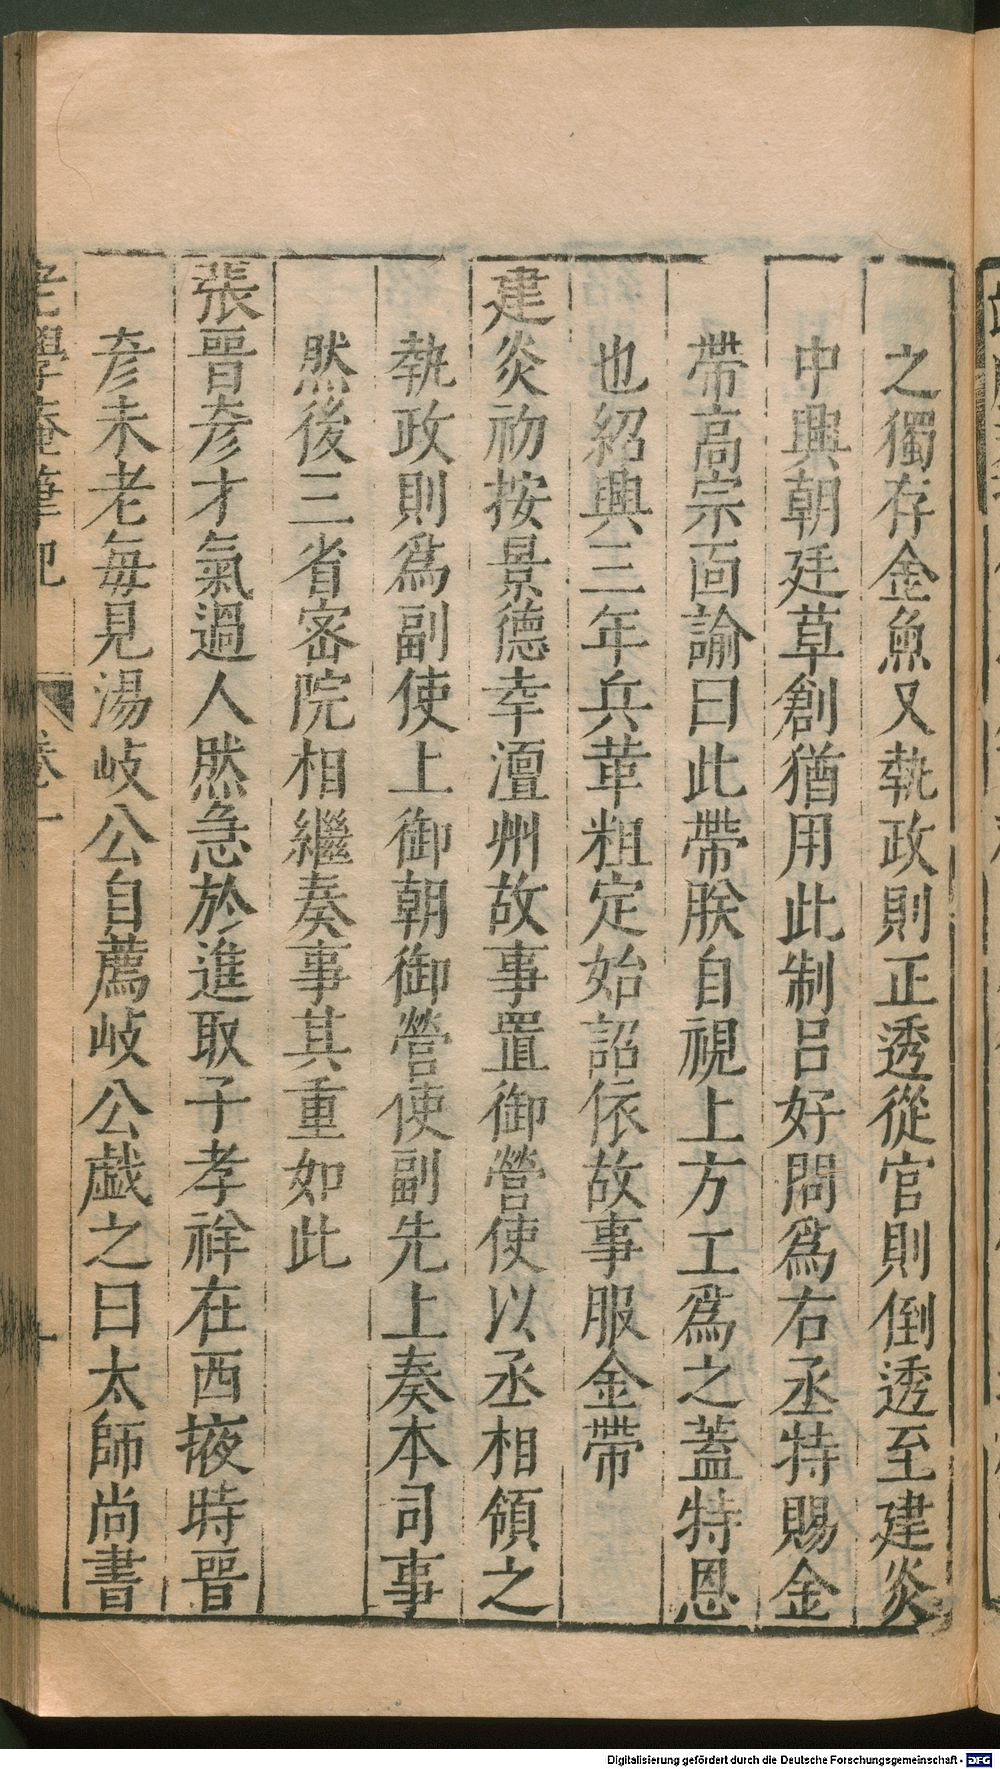 之獨存金魚又執政則正透從官則倒透至建炎
中興朝廷草創猶用此制呂好問爲右丞特賜金
帶高宗面諭曰此帶朕自視上方工爲之蓋特恩
也紹興三年兵革粗定始詔依故事服金帶
建炎初按景德幸澶州故事置御營使以丞相領之
執政則爲副使上御朝御營使副先上奏本司事
然後三省密院相繼奏事其重如此
張晉彥才氣過人然急於進取子孝祥在西掖時晉
彥未老每見湯岐公自薦岐公戲之曰太師尚書
老學庵筆記 卷一
Digitalisierung gefördert durch die Deutsche Forschungsgemeinschaft - DFG